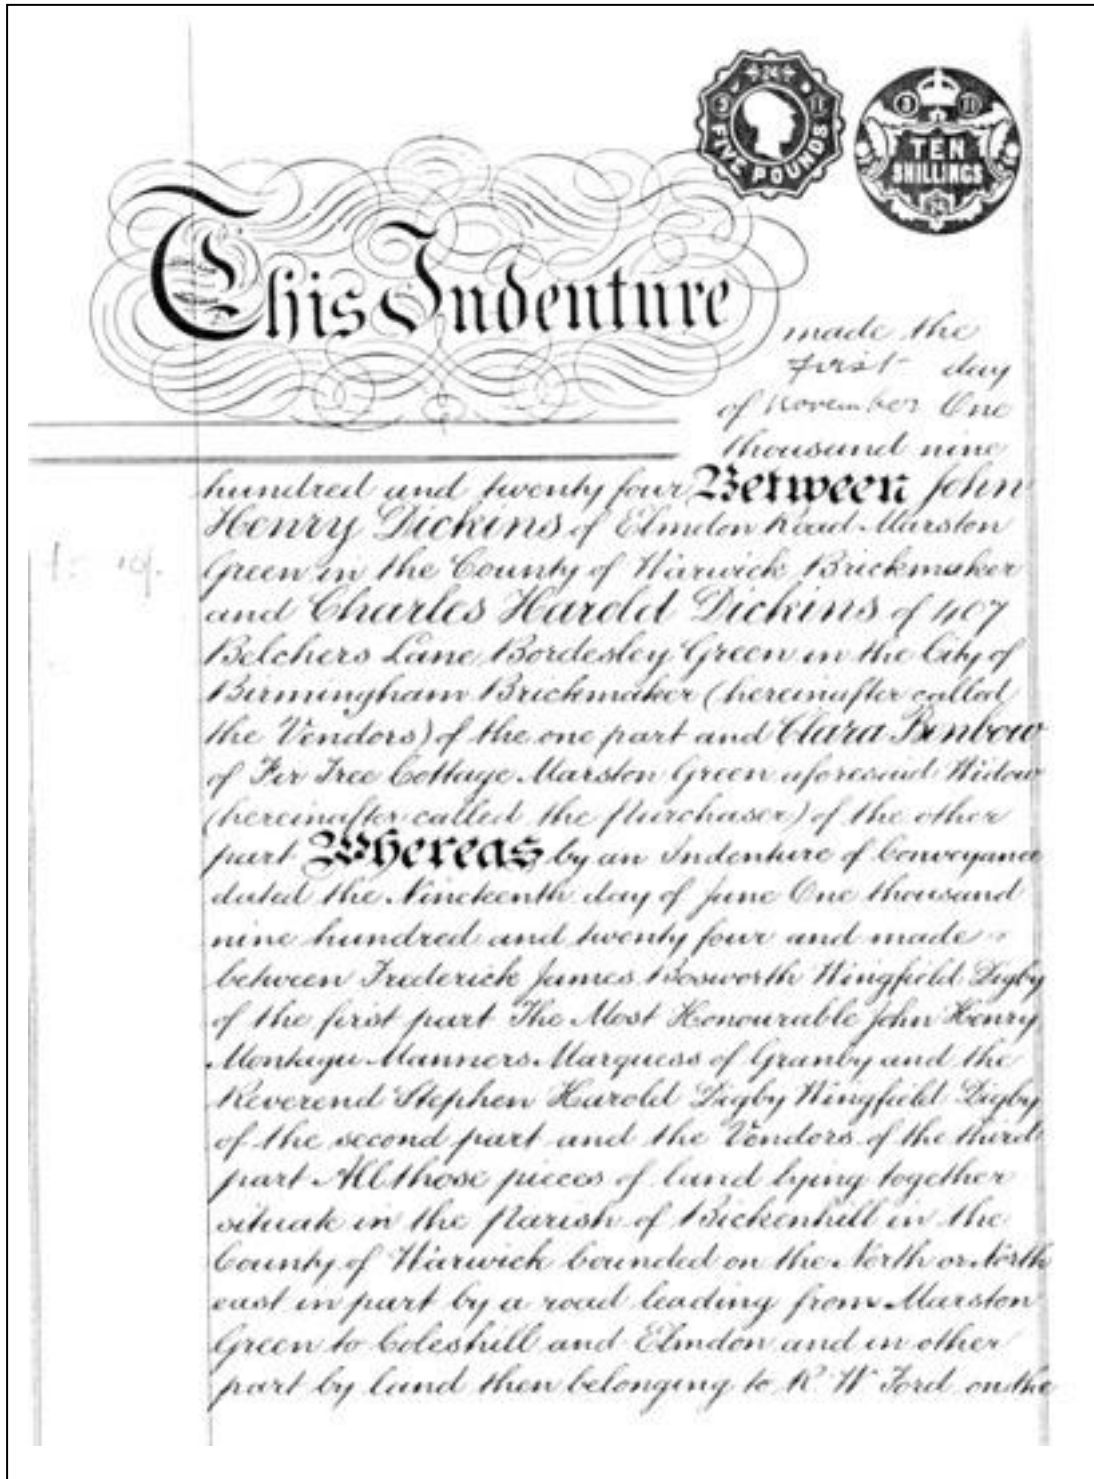 24
3 11
FIVE POUNDS
3 11
TEN
SHILLINGS
24
This Indenture
made the
First day
of November One
thousand nine
hundred and twenty four Between John
Henry Dickins of Elmdon Road Marston
Green in the County of Warwick Brickmaker
and Charles Harold Dickins of 407
Belchers Lane Bordesley Green in the City of
Birmingham Brickmaker (hereinafter called
the Vendors) of the one part and Clara Benbow
of Fir Tree Cottage Marston Green aforesaid Widow
(hereinafter called the Purchaser) of the other
part Whereas by an Indenture of Conveyance
dated the Nineteenth day of June One thousand
nine hundred and twenty four and made
between Frederick James Bosworth Wingfield Digby
of the first part The Most Honourable John Henry
Montagu Manners Marquess of Granby and the
Reverend Stephen Harold Digby Wingfield Digby
of the second part and the Vendors of the third
part All those pieces of land lying together
situate in the Parish of Bickenhill in the
County of Warwick bounded on the North or North
east in part by a road leading from Marston
Green to Coleshill and Elmdon and in other
part by land then belonging to R. W Ford on the